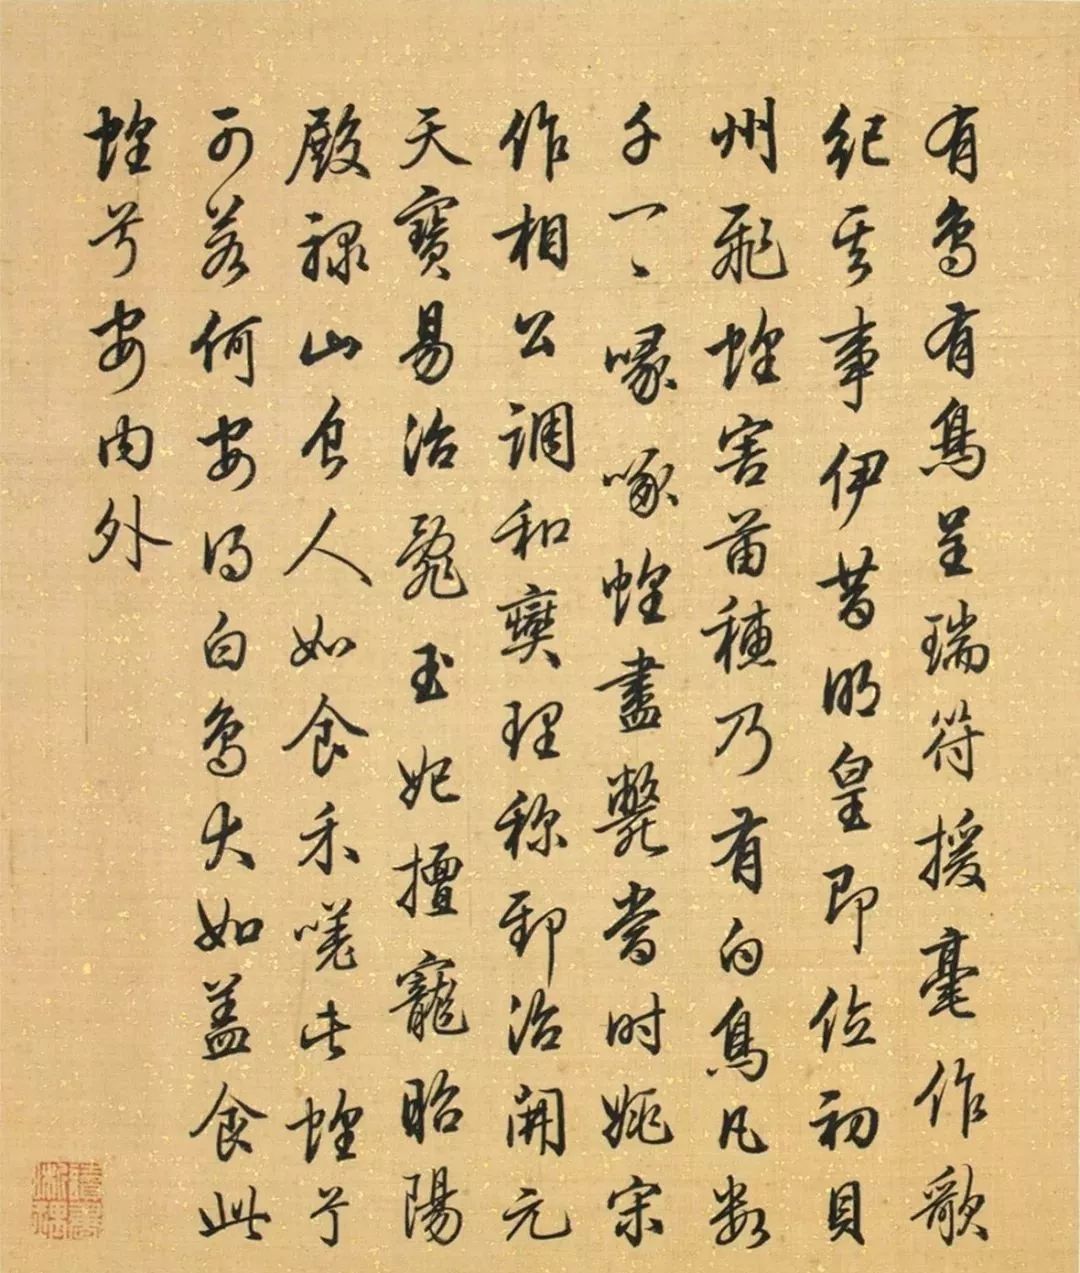 有鳥有鳥呈瑞符援毫作歌
紀其事伊昔明皇即位初貝
州飛蝗害苗穗乃有白鳥凡数
千一〻喙啄蝗盡斃當时姚宋
作相公調和爕理称郅治開元
天寶易治亂玉妃擅寵昭陽
殿禄山食人如食禾嗟此蝗兮
可若何安得白鳥大如盖食此
蝗兮安内外